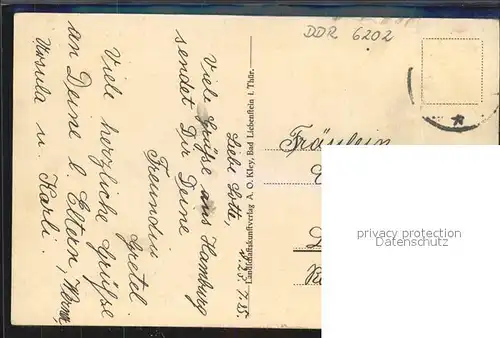 DDR 6202
d. 25.7.25.
Liebe Lotte,
Viele Grüße aus Hamburg
sendet Dir Deine
Freundin
Gretel
Viele herzliche Grüße
an Deine l. Eltern, Werner,
Ursula u. Karli
Landschaftskunstverlag A. O. Kley, Bad Liebenstein i. Thür.
Fräulein
privacy protection
Datenschutz